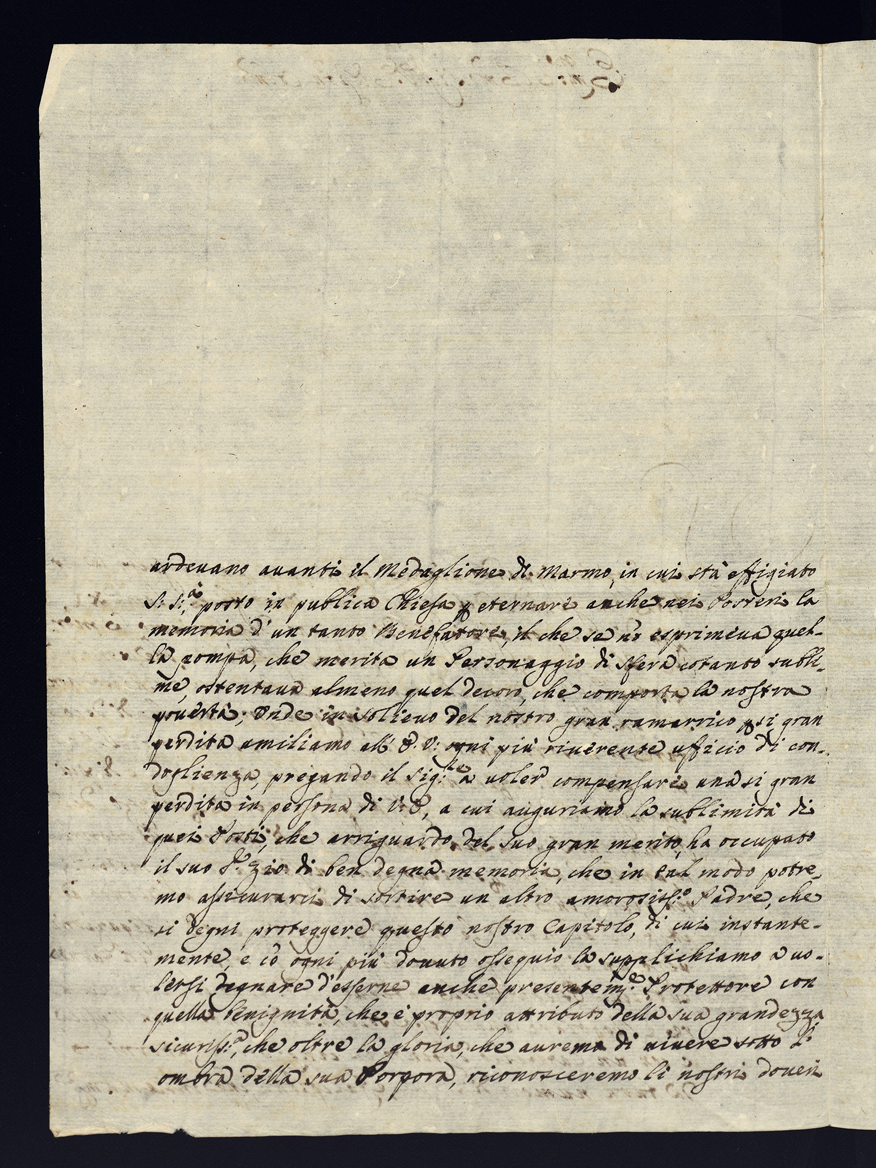 ardevano avanti il Medaglione di Marmo, in cui stà effigiato
S. S.ria posto in publica Chiesa p eternare anche nei Posteri la
memoria d'un tanto Benefattore, il che se nõ esprimeva quel-
la pompa, che merita un Personaggio di sfera cotanto subli-
me, ostentava almeno quel decoro, che comporta la nostra
povertà; Onde in solievo del nostro gran ramarrico p si gran
perdita umiliamo all' E. V. ogni più riverente ufficio di con-
doglienza, pregando il Sig.re a voler compensare una si gran
perdita in persona di V. E, a cui auguriamo la sublimità di
quei Posti, che arriguardo del suo gran merito, ha occupato
il suo S.r Zio di ben degna memoria, che in tal modo potre-
mo assicurarci di sortire un altro amorosiss.o Padre, che
si degni proteggere questo nostro Capitolo, di cui instante-
mente, e cõ ogni più dovuto ossequio la supplichiamo a vo-
lersi degnare d'esserne anche presentem.e Protettore con
quella benignità, che è proprio attributo della sua grandezza
sicuriss.i, che oltre la gloria, che avremo di vivere sotto l'
ombra della sua Porpora, riconosceremo li nostri doveri